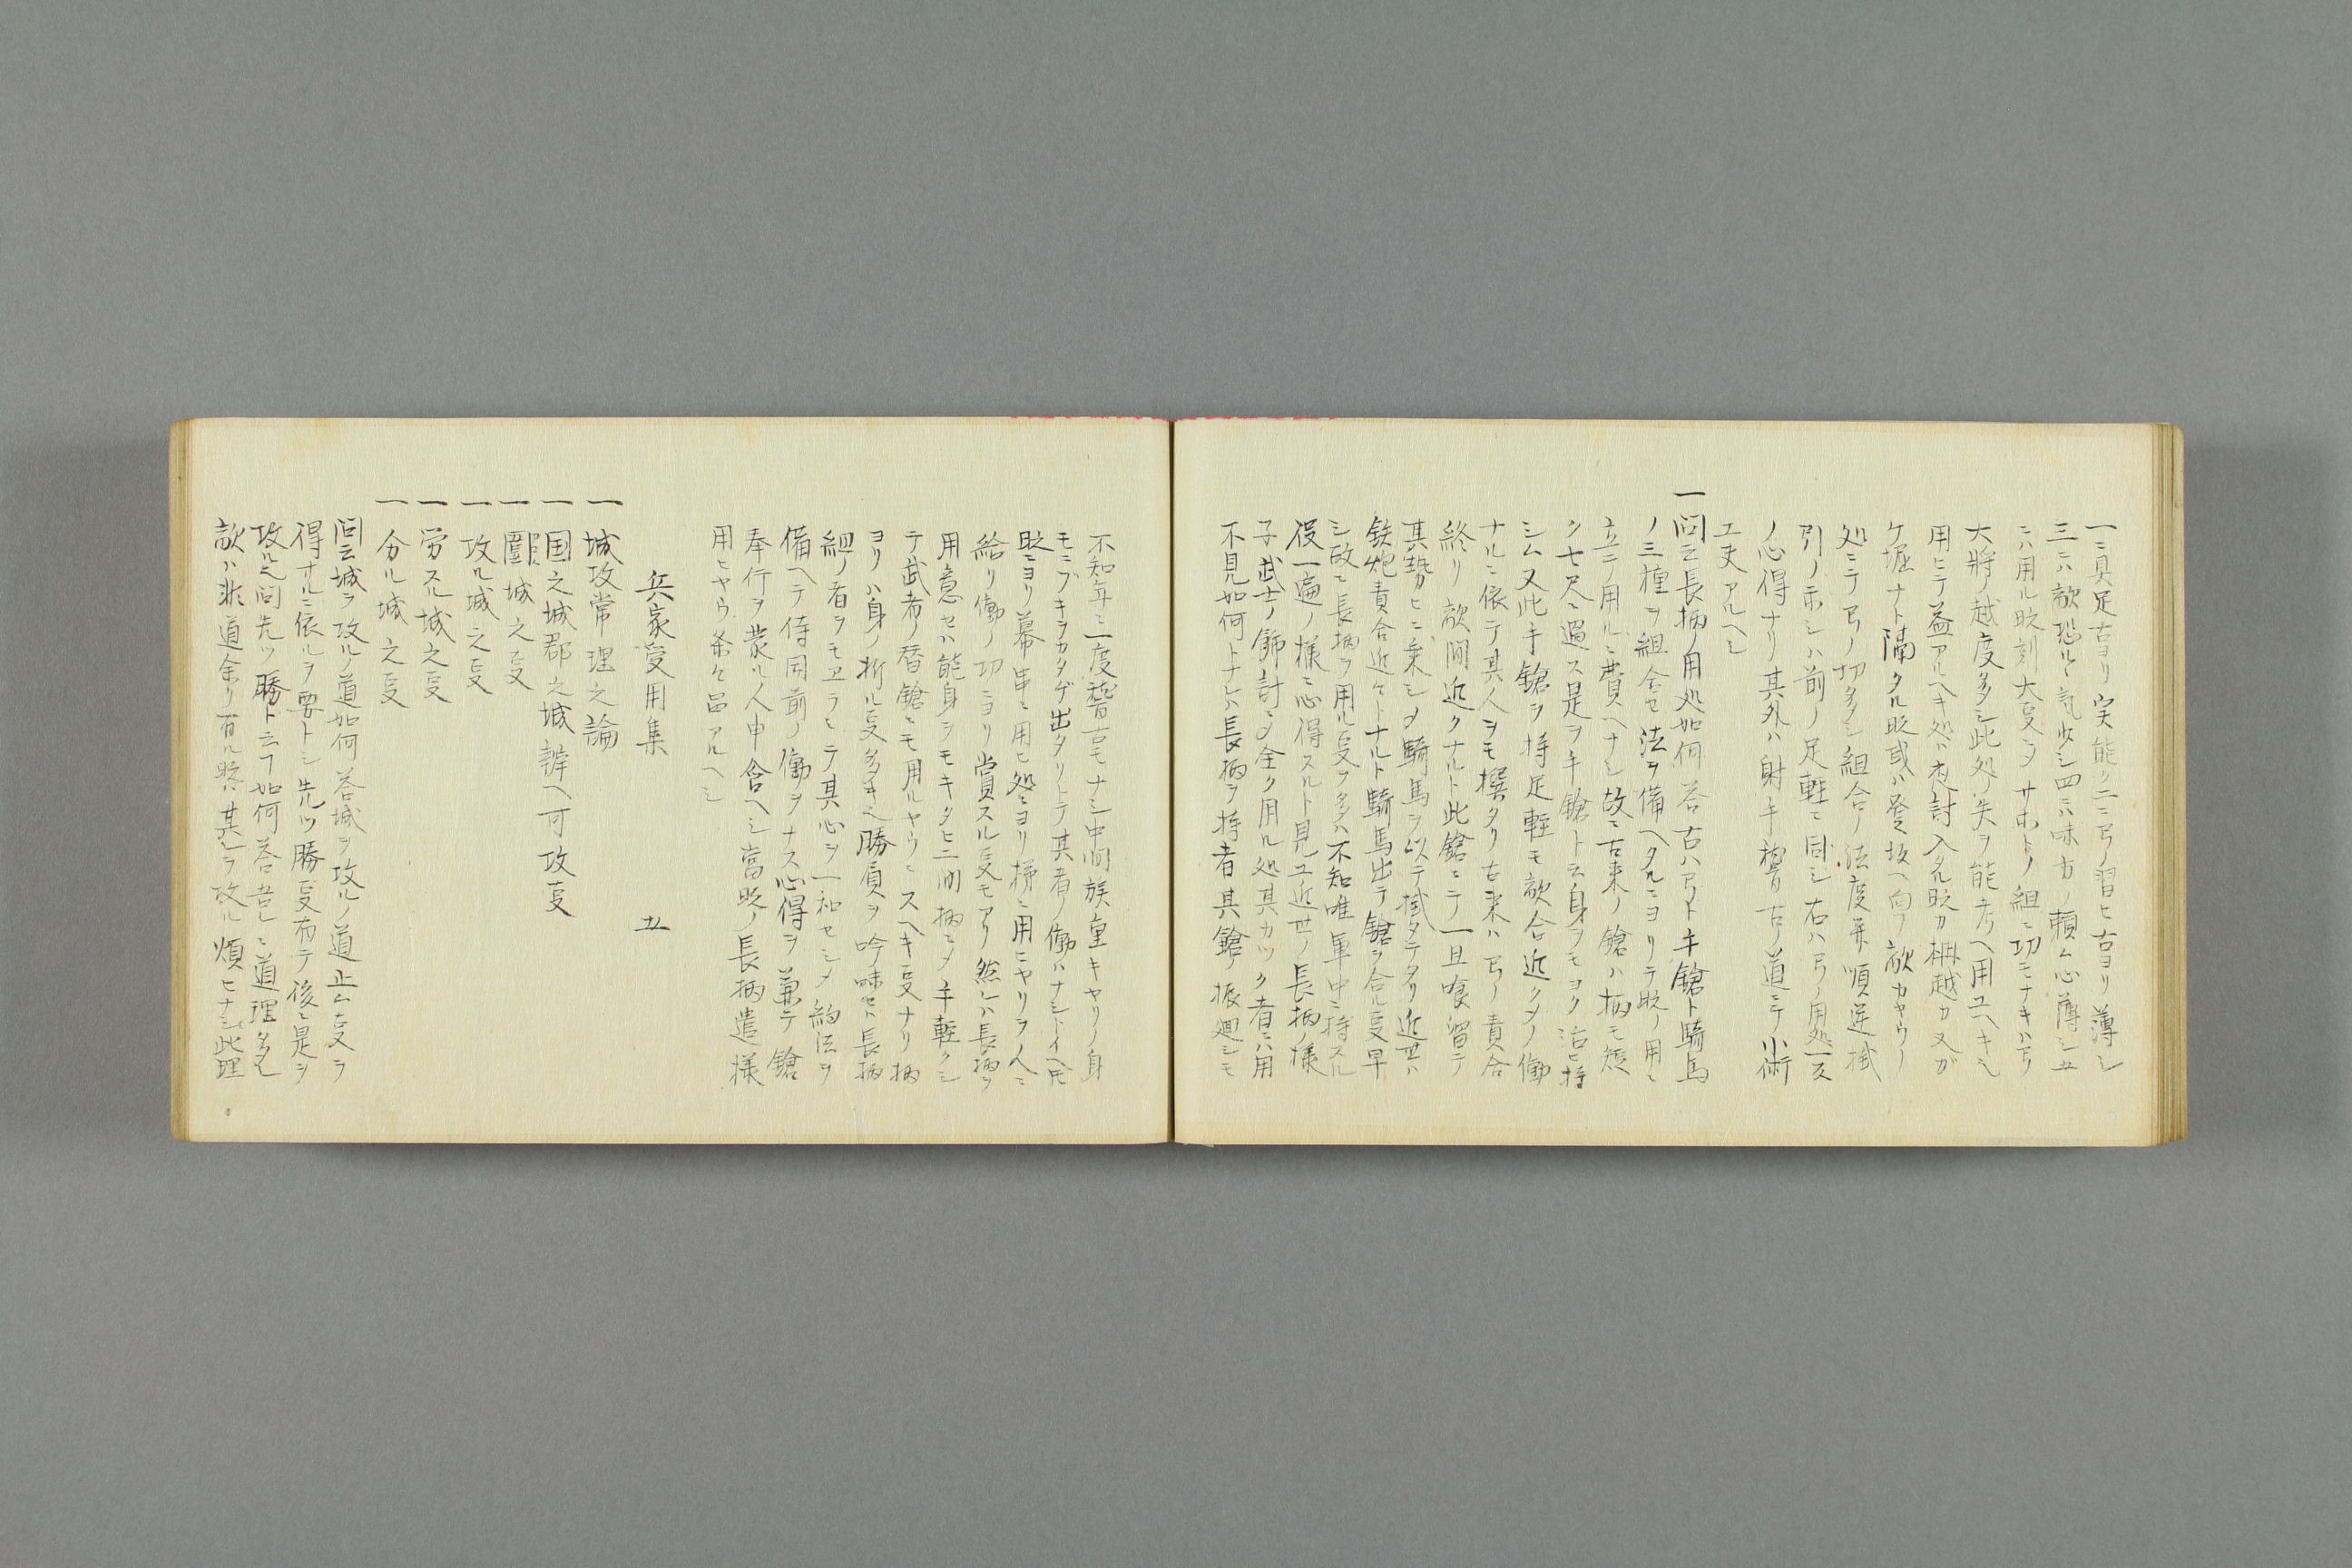 一ニ具足古ヨリ実能ク二ニ弓ノ習ヒ古ヨリ薄シ
三ニハ敵恐ルヽ気少シ四ニハ味方ノ頼ム心薄シ五
ニハ用ル時刻大事ヲサホトノ組ニ切モナキハ弓
大将ノ越度多シ此処ノ失ヲ能考ヘ用ユヘキ也
用ヒテ益アルヘキ処ハ夜討入タル時カ柵越カ又ガ
ケ堀ナト隔タル時或ハ登坂ヘ向フ敵カヤウノ
処ニテ弓ノ切多シ組合ノ法度并順逆掛
引ノ示シハ前ノ足軽ニ同シ右ハ弓ノ用処一支
ノ心得ナリ其外ハ射手稽古ノ道ニテ小術
工夫アルヘシ
一 問云長柄ノ用処如何答古ハ弓ト手鎗ト騎馬
ノ三種ヲ組合セ法ヲ備ヘタルニヨリテ時ノ用ニ
立テ用ルニ費ヘナシ故ニ古来ノ鎗ハ柄モ短
ク七尺ニ過ス是ヲ手鎗ト云身ヲモヨク治ヒ持
シム又此手鎗ヲ持足軽モ敵合近クメノ働
ナルニ依テ其人ヲモ撰タリ古来ハ弓ノ責合
終リ敵間近クナルト此鎗ニテ一旦喰留テ
其勢ヒニ乗シメ騎馬ヲ以テ掛タテタリ近世ハ
鉄炮責合近ケトナルト騎馬出テ鎗ヲ合ル事早
シ故ニ長柄ヲ用ル事ヲ多ハ不知唯軍中ニ持スル
役一遍ノ様ニ心得スルト見ユ近世ノ長柄ノ様
子武士ノ飾計ニメ全ク用ル処其カツク者ニハ用
不見如何トナレハ長柄ヲ持者其鎗ノ振廻シモ
不知年ニ一度稽古モナシ中間族重キヤリノ身
モニブキヲカタゲ出タリトテ其者ノ働ハナシトイヘ圧
時ニヨリ幕串ニ用ヒ処ニヨリ梯ニ用ヒヤリヲ人ニ
給リ働ノ切ニヨリ賞スル事モアリ然レハ長柄ヲ
用意セハ能身ヲモキタヒ二間柄ニメ手軽クシ
テ武者ノ替鎗ニモ用ルヤウニスヘキ事ナリ柄
ヨリハ身ノ折ル事多キ也勝負ヲ吟味セト長柄
組ノ者ヲモヱラミテ其心ヲ一和セシメ約法ヲ
備ヘテ侍同前ノ働ヲナス心得ヲ兼テ鎗
奉行ヲ蒙ル人申含ヘシ当時ノ長柄遣様
用ヒヤウ条々品アルヘシ
兵家受用集 五
一 城攻常理之論
一 国之城郡之城辨ヘ可攻事
一 圍城之事
一 攻ル城之事
一 労スル城之事
一 分ル城之事
問云城ヲ攻ルノ道如何答城ヲ攻ルノ道止ム事ヲ
得ザルニ依ルヲ要トシ先ツ勝事布テ後ニ是ヲ
攻ル也問先ツ勝ト云フ如何答吉ニ道理多ク
敵ハ非道余リ有ル時ハ其是ヲ攻ル煩ヒナシ此理